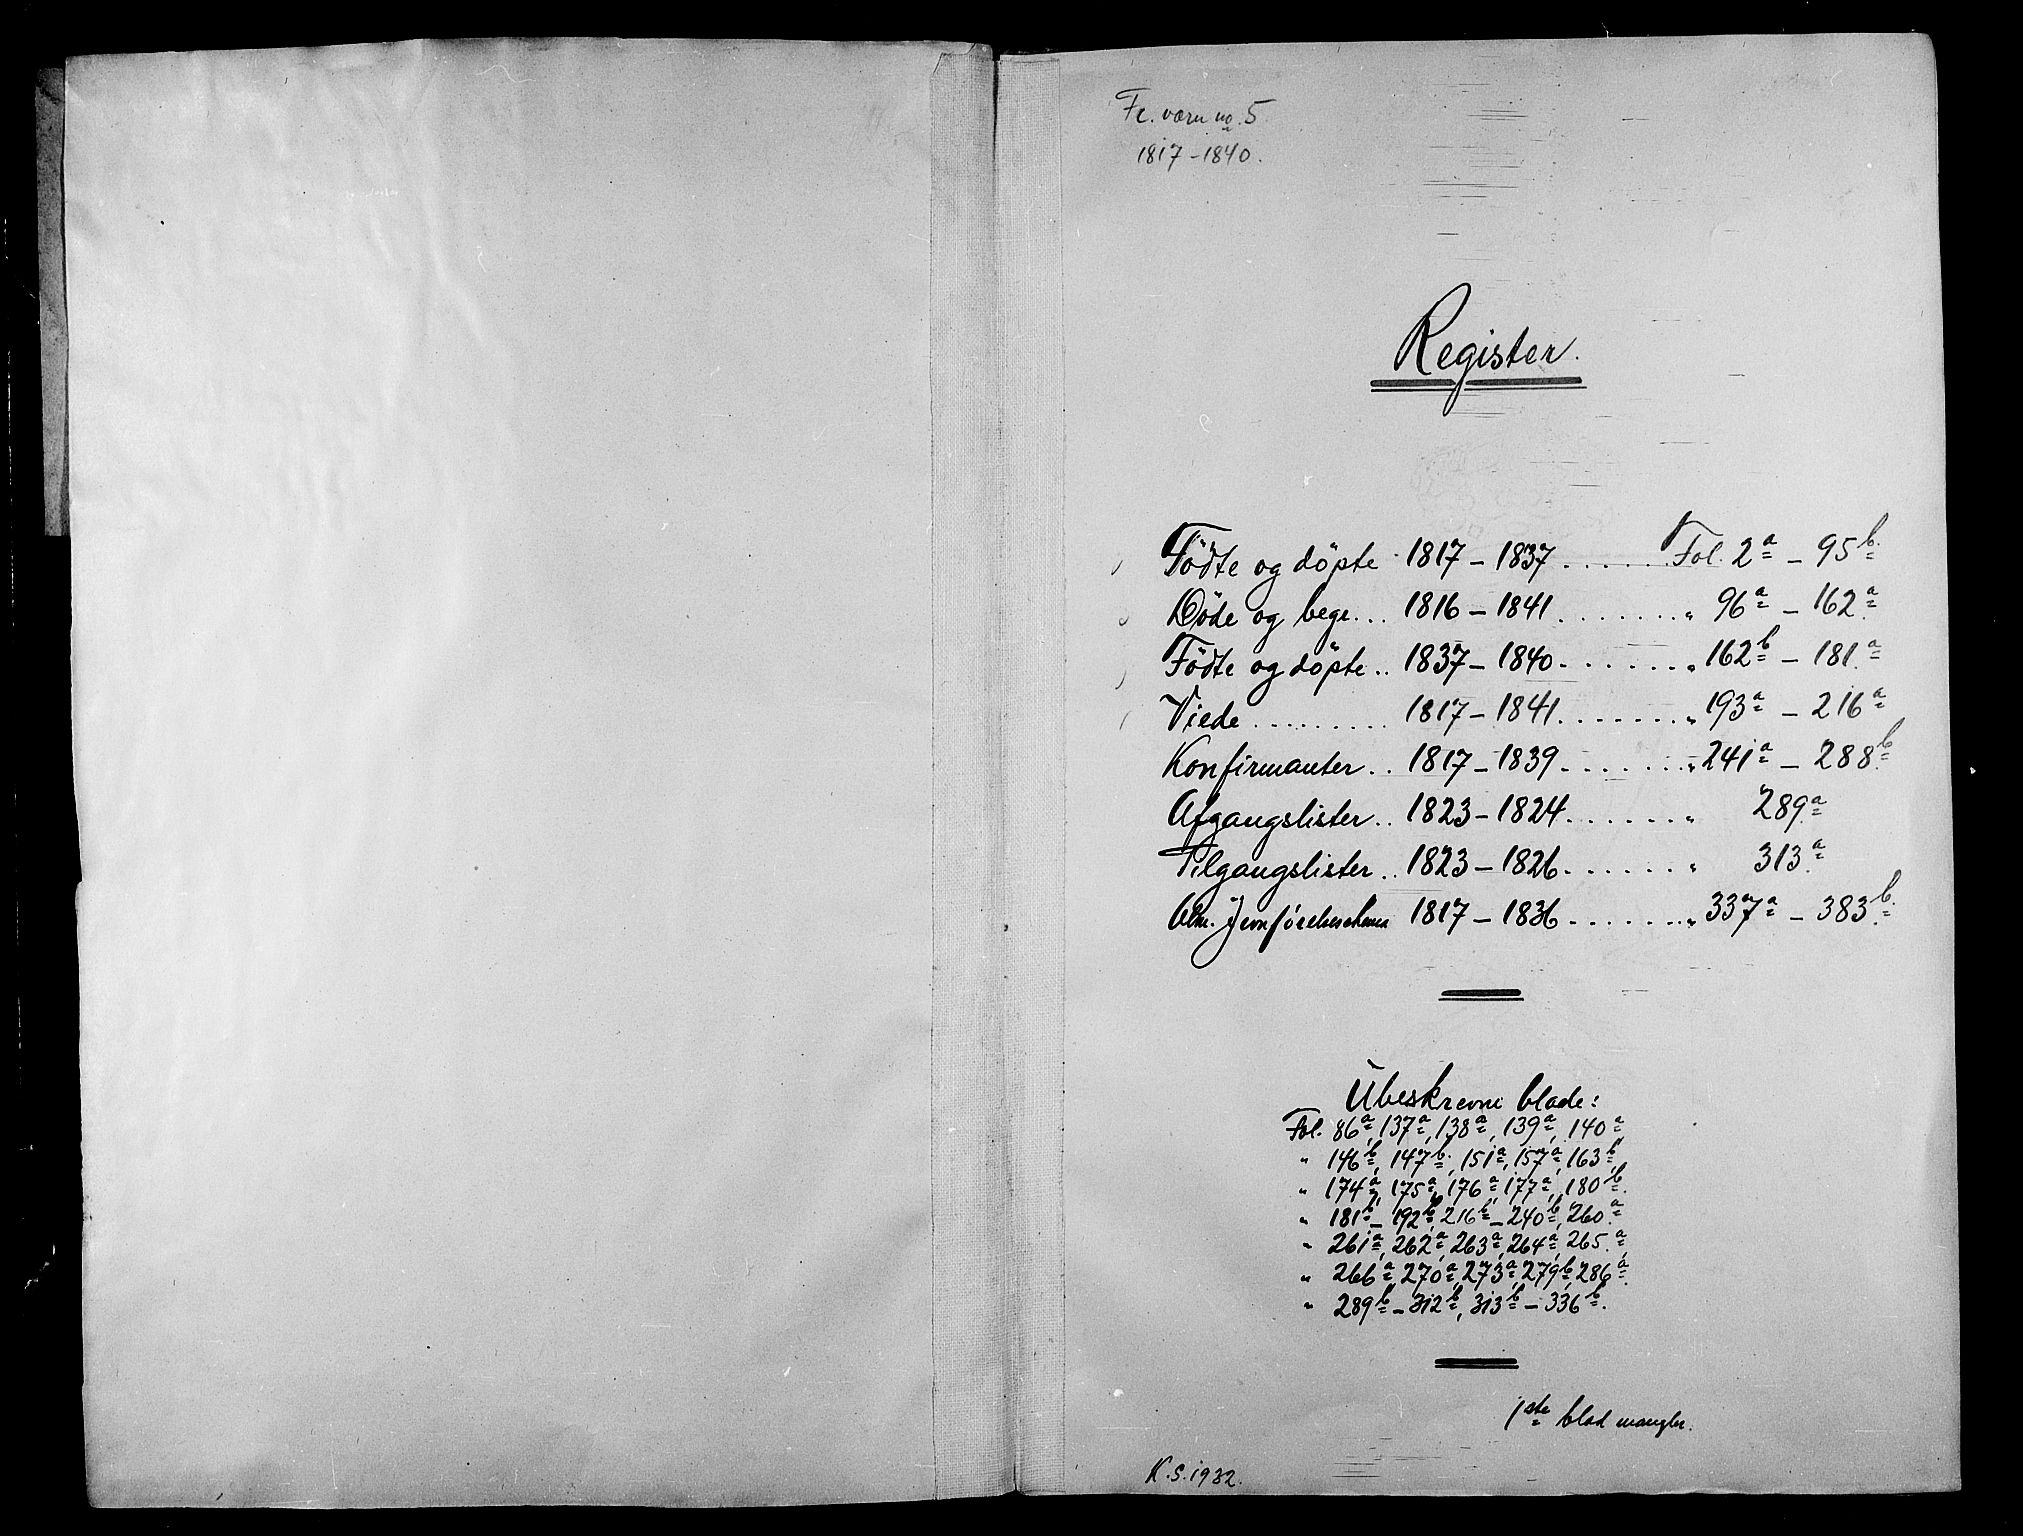 Fr.værn no. 5
1817-1840.
Register.
Födte og döpte 1817-1837 ...... Fol. 2a - 95b.
Döde og begr... 1816-1841 ....... " 96a - 162a.
Födte og döpte .. 1837-1840. ...... " 162b - 181.a
Viede ......... 1817-1841 ....... " 193a - 216a
Konfirmanter .. 1817-1839 ....... " 241a - 288b.
Afgangslister .. 1823-1824 ...... " 289a.
Tilgangslister .. 1823-1826 ...... " 313a.
Alm. Jevnförelseschema 1817-1836 ....... " 337a - 383b.
Ubeskrevne blade:
Fol. 86a, 137a, 138a, 139a, 140a
" 146b, 147b, 151a, 157a, 163b,
" 174a, 175a, 176a, 177a, 180b.
" 181b - 192b, 216b - 240b, 260.a
" 261a, 262a, 263a, 264a, 265.a
" 266a, 270a, 273a, 279b, 286a.
" 289b - 312b, 313b - 336b.
1ste blad mangler.
K.S. 1932.